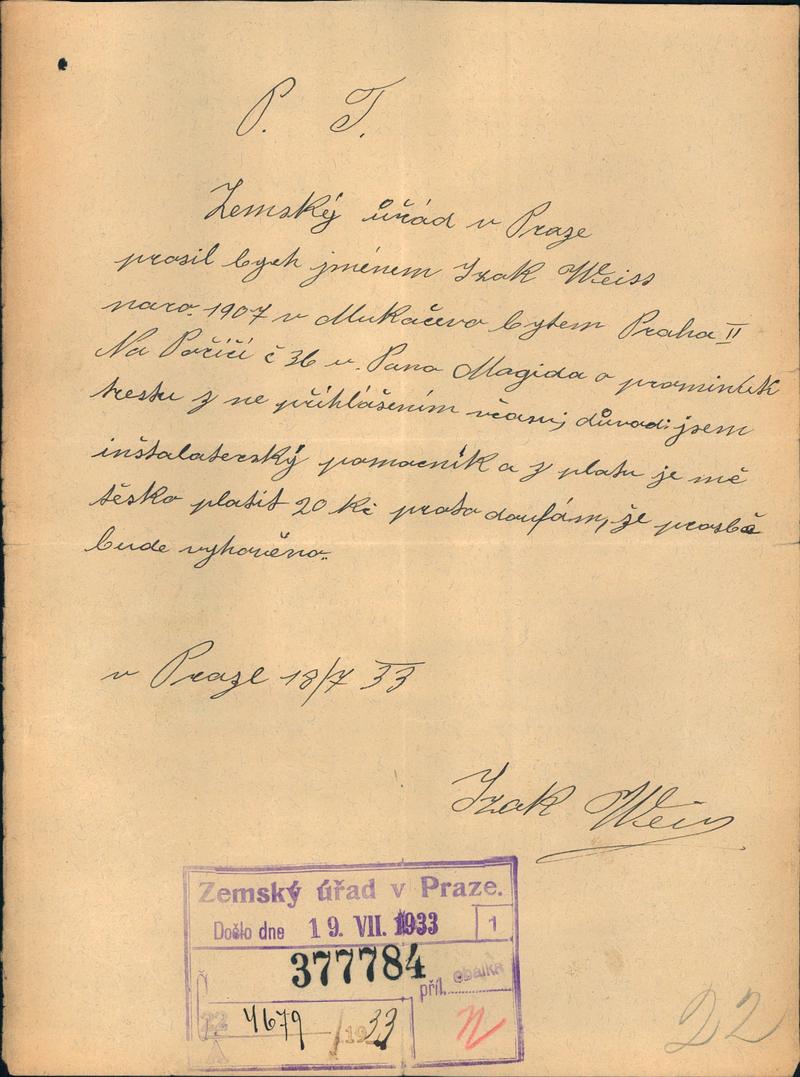 P. T.
Zemský úřád v Praze
prosil bych jménem Izak Weiss
naro. 1907 v Mukačevo bytem Praha II
Na Poříčí č 36 u. Pana Magida o prominutí
trestu z ne přihlášením včasní důvod: jsem
inštalaterský pomocník a z platu je mě
těsko platit 20 Kč proto doufám, že prosbě
bude vyhověno.
v Praze 18/7 33
Izak Weiss
Zemský úřad v Praze.
Došlo dne 19. VII. 1933 1
377784
Č příl. obálka
22 4679 /1933
A
22